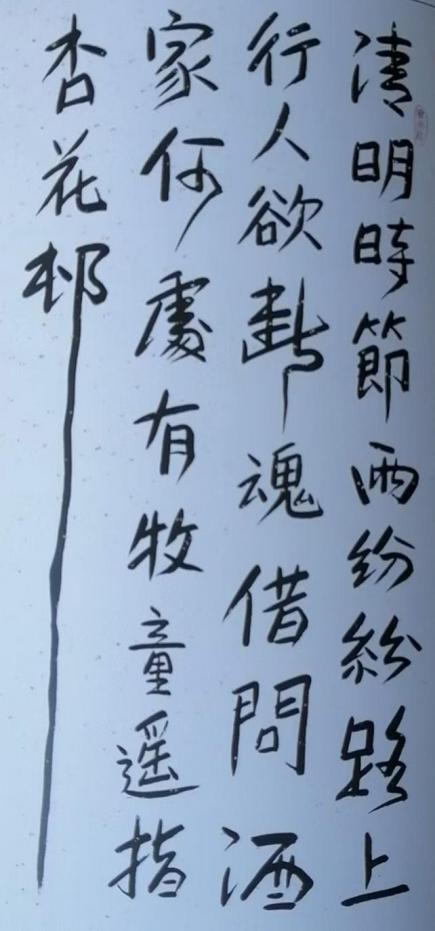 清明時節雨纷紛路上
行人欲斷魂借問酒
家何處有牧童遥指
杏花邨